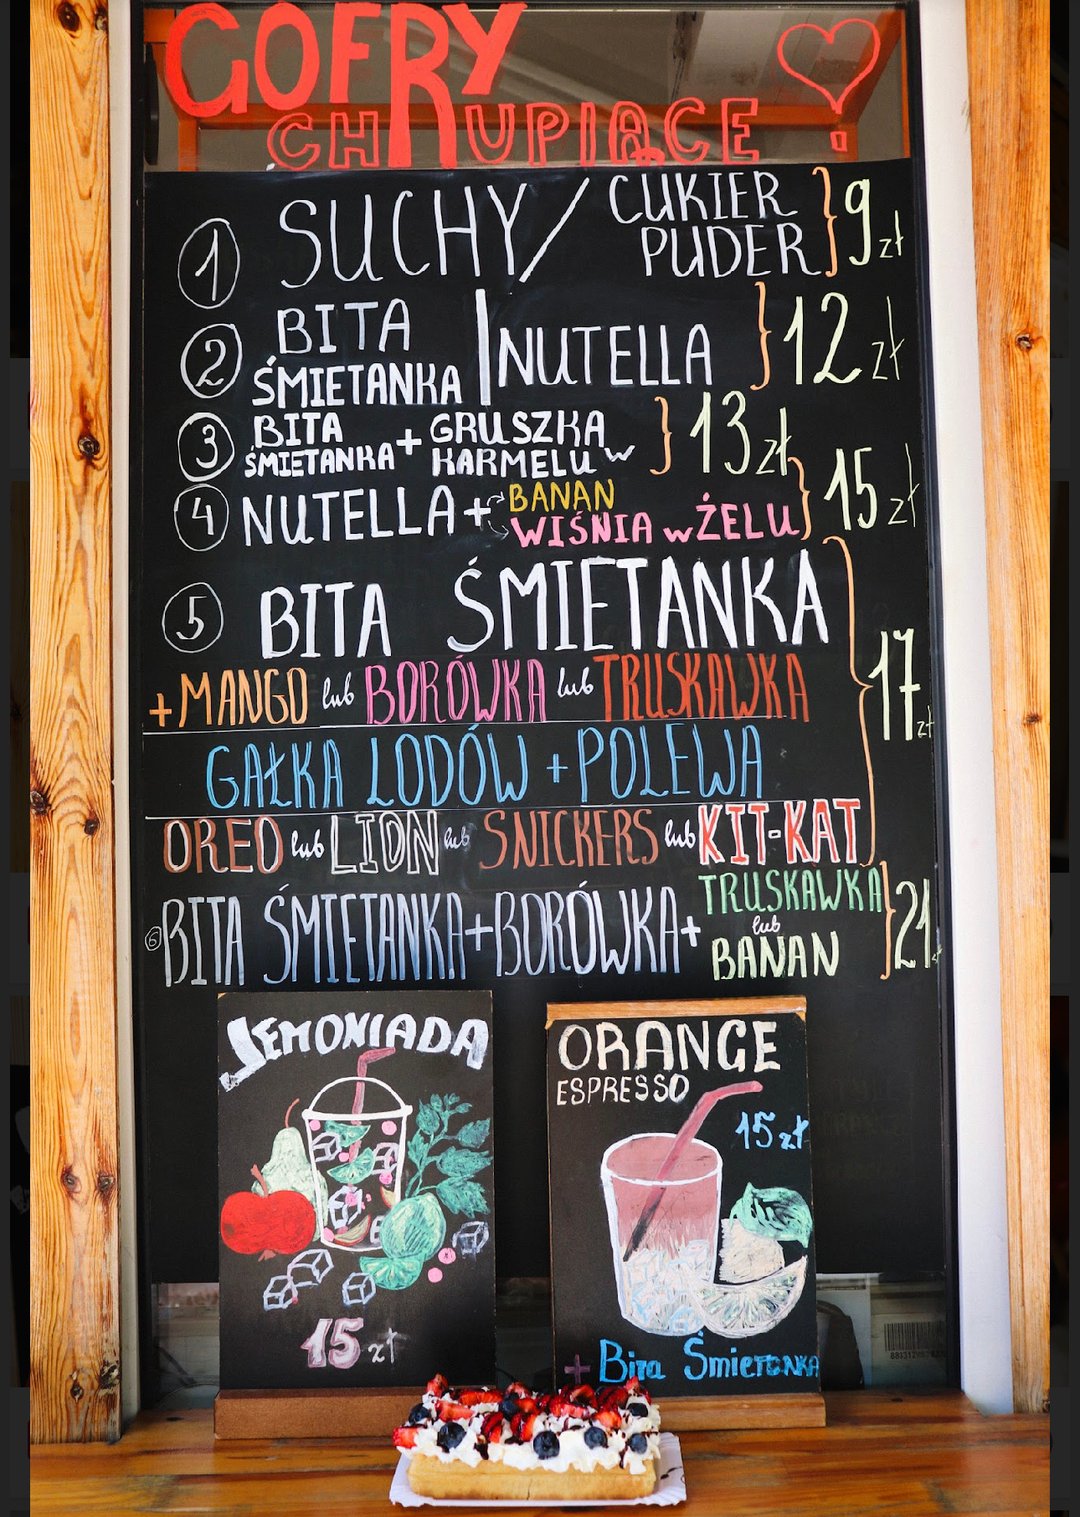 GOFRY
CHRUPIĄCE !
1 SUCHY / CUKIER PUDER } 9 zł
2 BITA ŚMIETANKA | NUTELLA } 12 zł
3 BITA ŚMIETANKA + GRUSZKA W KARMELU } 13 zł
4 NUTELLA + BANAN
WIŚNIA w ŻELU } 15 zł
5 BITA ŚMIETANKA
+ MANGO lub BORÓWKA lub TRUSKAWKA
GAŁKA LODÓW + POLEWA
} 17 zł
OREO lub LION lub SNICKERS lub KIT-KAT
6 BITA ŚMIETANKA + BORÓWKA + TRUSKAWKA lub BANAN } 21
LEMONIADA
15 zł
ORANGE
ESPRESSO
15 zł
+ Bita Śmietanka